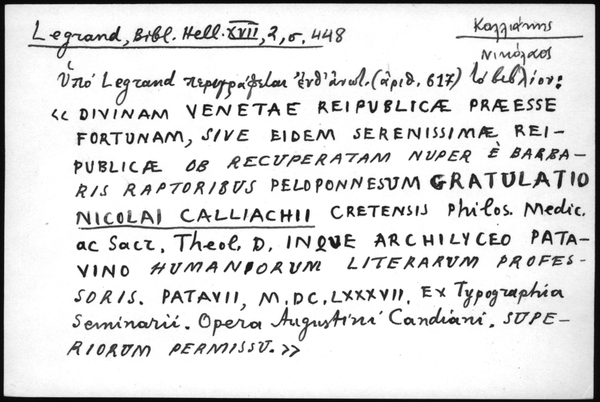 Legrand, Bibl. Hell. XVII, 2, σ. 448
Καλλιάκης
Νικόλαος
Ὑπό Legrand περιγράφεται ἐνθ' ἀνωτ. (ἀριθ. 617) τό βιβλίον:
<< DIVINAM VENETAE REIPUBLICÆ PRÆESSE
FORTUNAM, SIVE EIDEM SERENISSIMÆ REI-
PUBLICÆ OB RECUPERATAM NUPER È BARBA-
RIS RAPTORIBUS PELOPONNESUM GRATULATIO
NICOLAI CALLIACHII CRETENSIS Philos. Medic.
ac Sacr. Theol. D. INQUE ARCHILYCEO PATA-
VINO HUMANIORUM LITERARUM PROFES-
SORIS. PATAVII, M.DC.LXXXVII. Ex Typographia
Seminarii. Opera Augustini Candiani. SUPE-
RIORUM PERMISSU. >>